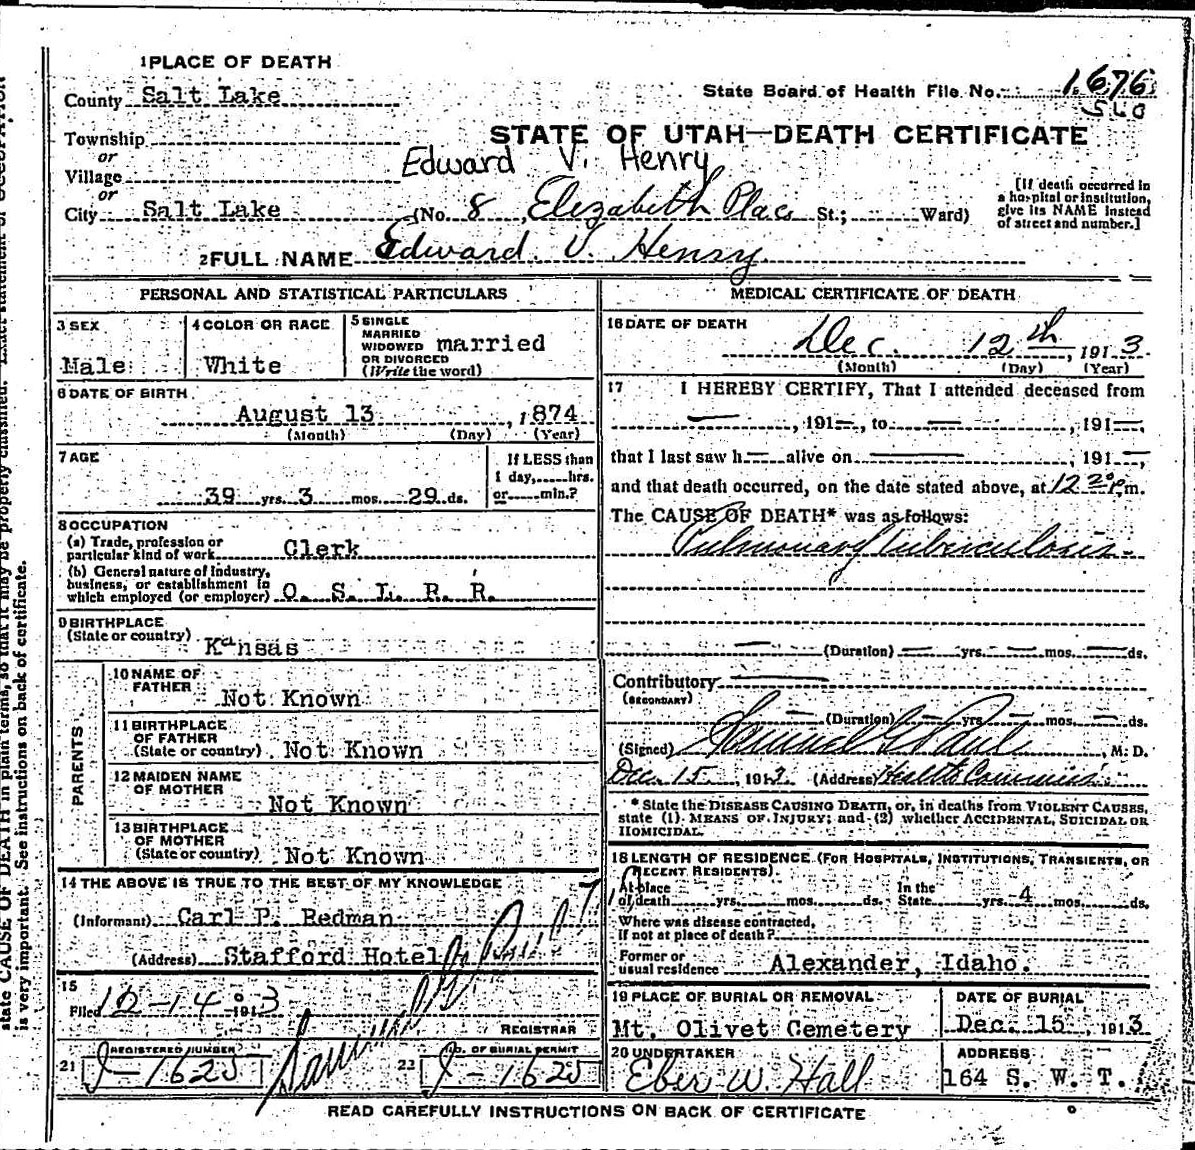 1 PLACE OF DEATH
County Salt Lake
State Board of Health File No. 1676
Township
STATE OF UTAH—DEATH CERTIFICATE
or
Village
Edward V. Henry
or
City Salt Lake (No. 8 Elizabeth Place St.; Ward)
[If death occurred in
a hospital or institution,
give its NAME instead
of street and number.]
2 FULL NAME Edward V. Henry
PERSONAL AND STATISTICAL PARTICULARS
3 SEX
Male
4 COLOR OR RACE
White
5 SINGLE
MARRIED
WIDOWED married
OR DIVORCED
(Write the word)
6 DATE OF BIRTH
August 13, 1874
(Month) (Day) (Year)
7 AGE
39 yrs. 3 mos. 29 ds.
If LESS than
1 day, hrs.
or min.?
8 OCCUPATION
(a) Trade, profession or
particular kind of work Clerk
(b) General nature of industry,
business, or establishment in
which employed (or employer) O. S. L. R. R.
9 BIRTHPLACE
(State or country) Kansas
PARENTS
10 NAME OF
FATHER Not Known
11 BIRTHPLACE
OF FATHER
(State or country) Not Known
12 MAIDEN NAME
OF MOTHER
Not Known
13 BIRTHPLACE
OF MOTHER
(State or country) Not Known
14 THE ABOVE IS TRUE TO THE BEST OF MY KNOWLEDGE
(Informant) Carl P. Redman
(Address) Stafford Hotel
15
Filed 12-14 1913
REGISTRAR
21 REGISTERED NUMBER
J-1625
22 NO. OF BURIAL PERMIT
J-1625
MEDICAL CERTIFICATE OF DEATH
16 DATE OF DEATH
Dec. 12th, 1913
(Month) (Day) (Year)
17 I HEREBY CERTIFY, That I attended deceased from
—, 191—, to —, 191—,
that I last saw h— alive on —, 191—,
and that death occurred, on the date stated above, at 12 20 P.m.
The CAUSE OF DEATH* was as follows:
Pulmonary Tuberculosis
(Duration) — yrs. — mos. — ds.
Contributory —
(SECONDARY)
— (Duration) — yrs. — mos. — ds.
(Signed) Samuel G. Paul, M. D.
Dec. 15 1913 (Address) Health Commiss.
* State the DISEASE CAUSING DEATH, or, in deaths from VIOLENT CAUSES,
state (1) MEANS OF INJURY; and (2) whether ACCIDENTAL, SUICIDAL OR
HOMICIDAL.
18 LENGTH OF RESIDENCE (FOR HOSPITALS, INSTITUTIONS, TRANSIENTS, OR
RECENT RESIDENTS).
At place
of death yrs. mos. ds.
In the
State yrs. 4 mos. ds.
Where was disease contracted,
if not at place of death?
Former or
usual residence Alexander, Idaho.
19 PLACE OF BURIAL OR REMOVAL
Mt. Olivet Cemetery
DATE OF BURIAL
Dec. 15, 1913
20 UNDERTAKER
Eber W. Hall
ADDRESS
164 S. W. T.
READ CAREFULLY INSTRUCTIONS ON BACK OF CERTIFICATE
state CAUSE OF DEATH in plain terms, so that it may be properly classified. Exact statement of OCCUPATION
is very important. See instructions on back of certificate.